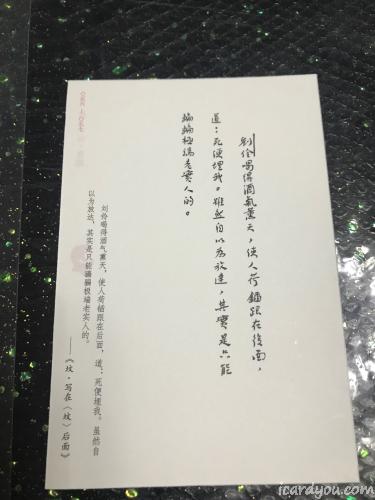 劉伶喝得酒氣薰天，使人荷鍤跟在後面，
道：死便埋我。雖然自以為放達，其實是只能
騙騙極端老實人的。
刘伶喝得酒气熏天，使人荷锸跟在后面，道：死便埋我。虽然自
以为放达，其实是只能骗骗极端老实人的。
——《坟·写在〈坟〉后面》
icardyou.com